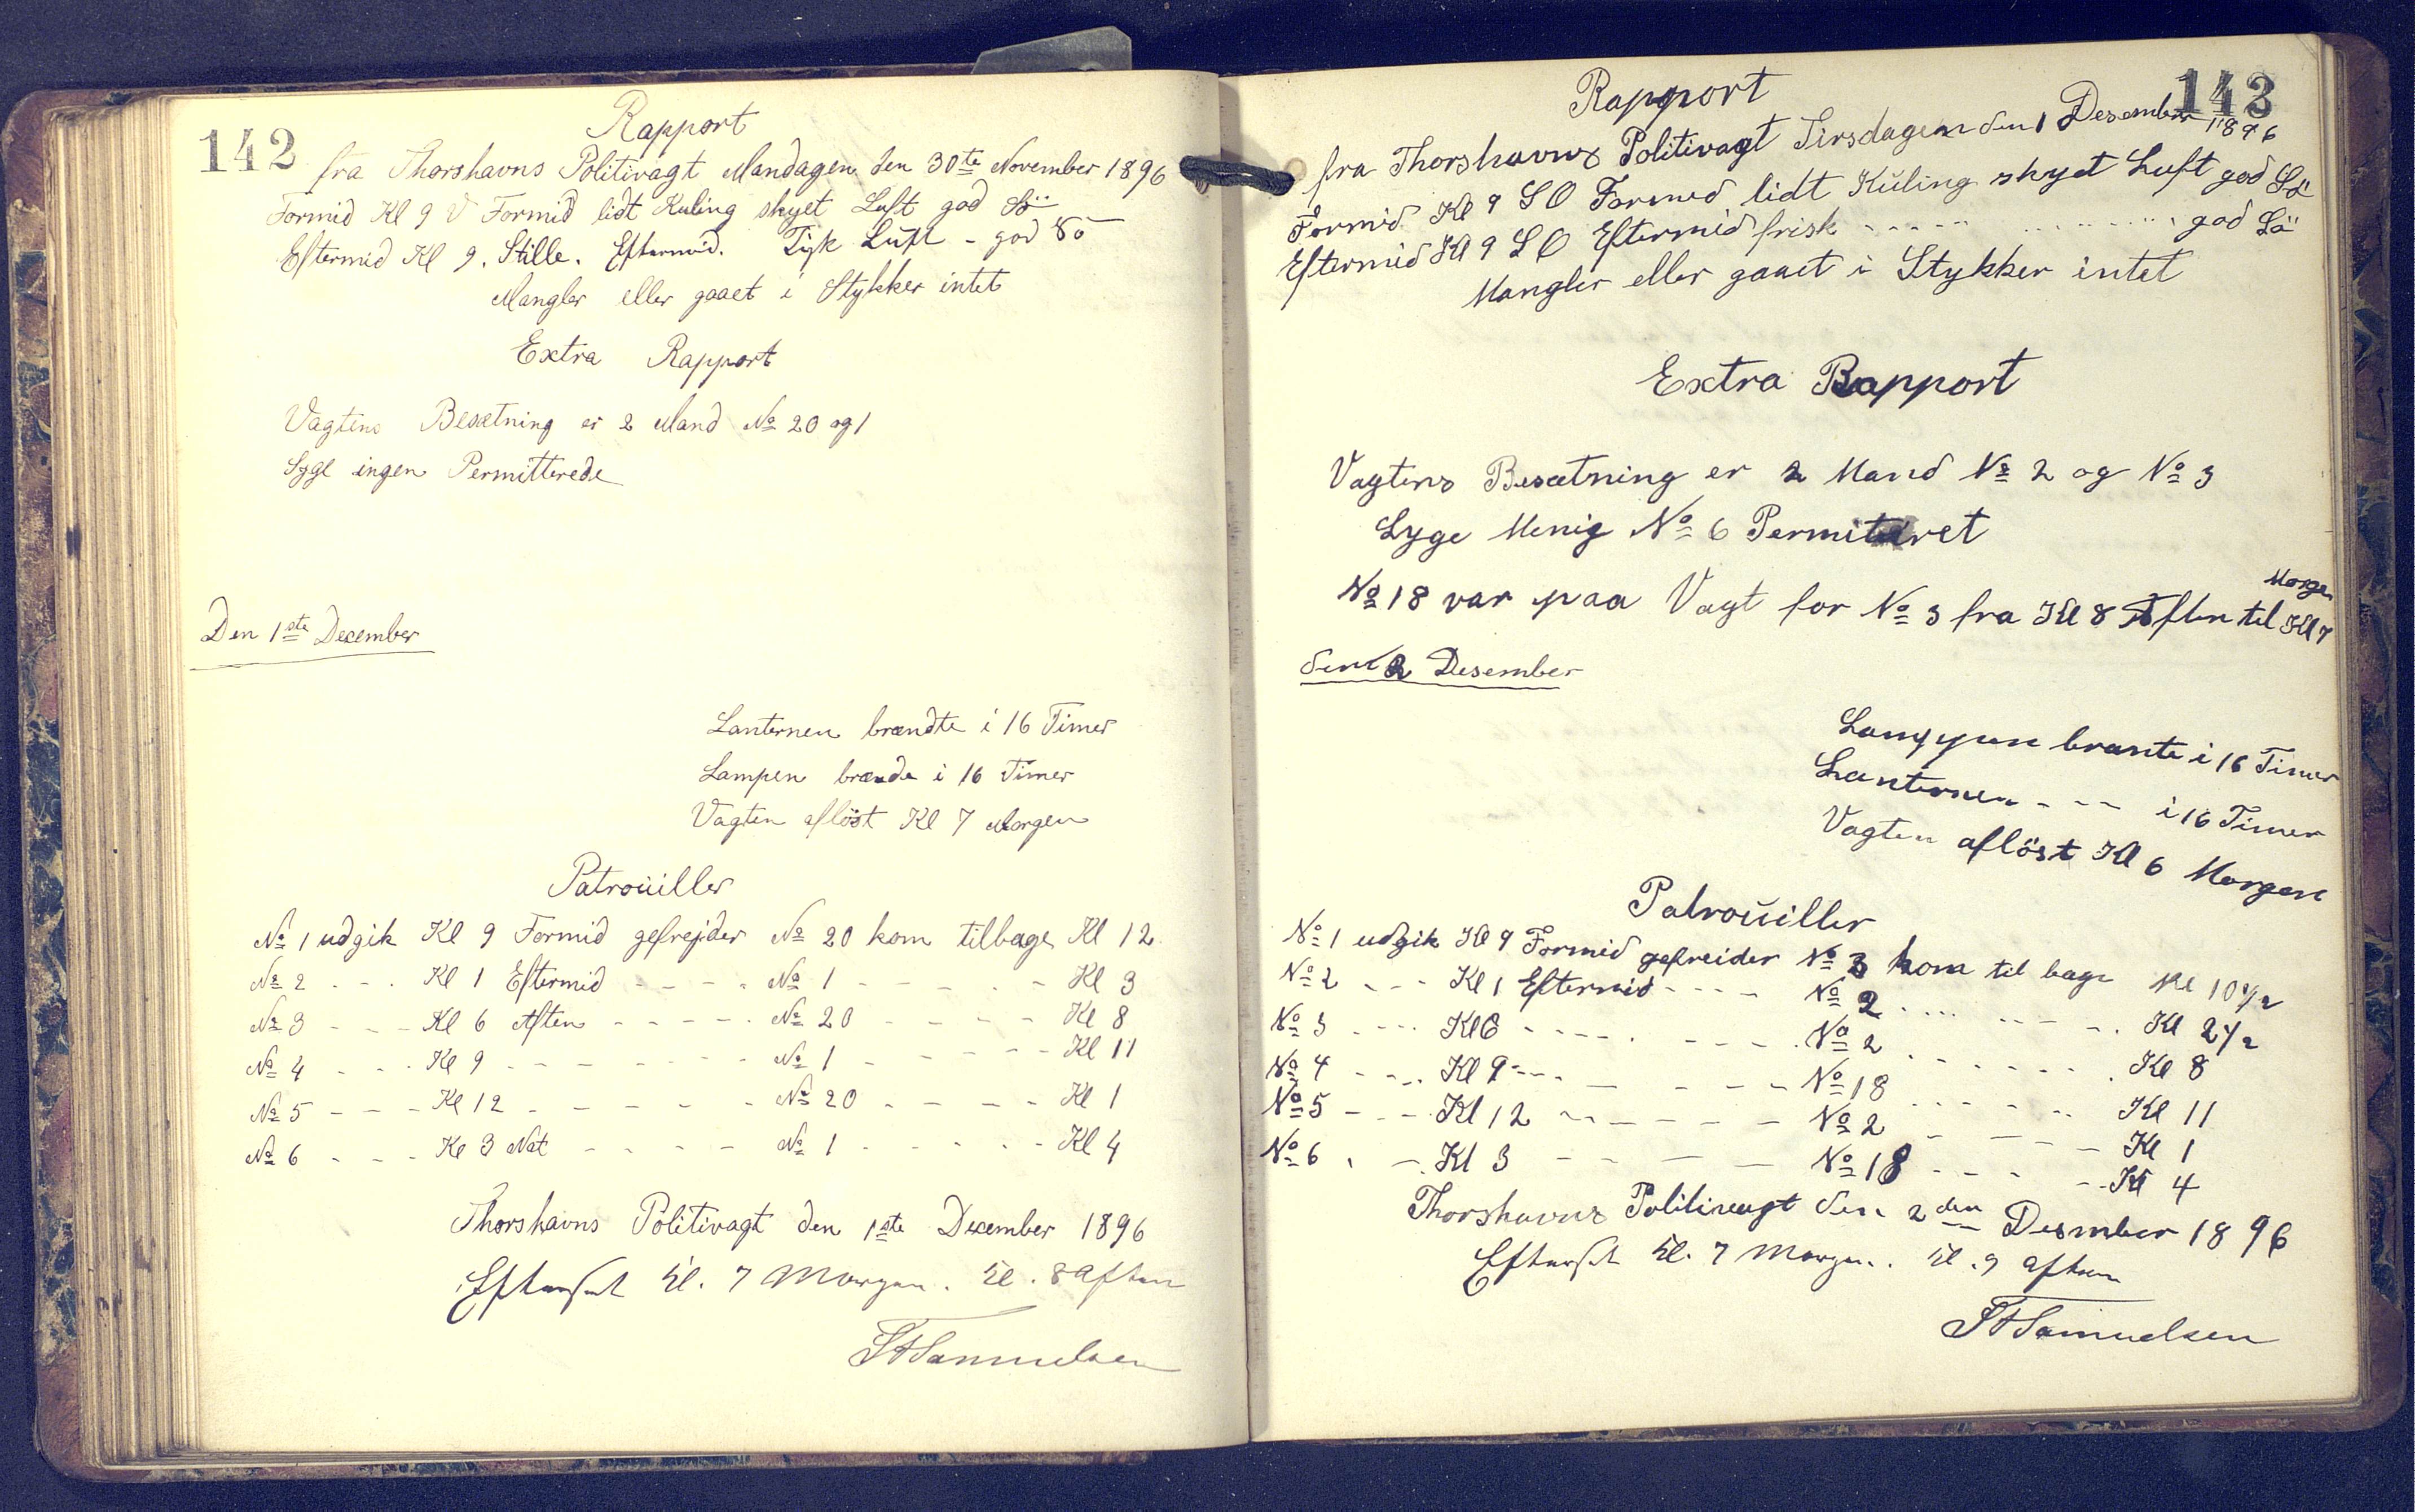 142
Rapport
fra Thorshavns Politivagt Mandagen den 30te November 1896
Formid Kl 9 V Formid lidt Kuling skyet Luft god Sö
Eftermid Kl 9. Stille. Eftermid. Tyk Luft - god Sö
Mangler eller gaaet i Stykker intet
Extra Rapport
Vagtens Besætning er 2 Mand No 20 og 1
Syge ingen Permitterede
Den 1ste December
Lanternen brændte i 16 Timer
Lampen brænde i 16 Timer
Vagten aflöst Kl 7 Morgen
Patrouiller
No 1 udgik Kl 9 Formid gefrejder No 20 kom tilbage Kl 12
No 2 - - - Kl 1 Eftermid - - - - No 1 - - - - - Kl 3
No 3 - - - Kl 6 Aften - - - - - No 20 - - - - - Kl 8
No 4 - - - Kl 9 - - - - - - No 1 - - - - - Kl 11
No 5 - - - Kl 12 - - - - - - No 20 - - - - - Kl 1
No 6 - - - Kl 3 Nat - - - - No 1 - - - - - Kl 4
Thorshavns Politivagt den 1ste December 1896
Efterset Kl. 7 Morgen. Kl. 8 Aften
Samuelsen
143
Rapport
fra Thorshavns Politivagt Tirsdagen den 1 Desember 1896
Formid Kl 9 SO Formid lidt Kuling skyet Luft god Sö
Eftermid Kl 9 SO Eftermid frisk - - - - - - - - - - god Sö
Mangler eller gaaet i Stykker intet
Extra Rapport
Vagtens Besætning er 2 Mand No 2 og No 3
Syge Menig No 6 Permiteret
No 18 var paa Vagt for No 3 fra Kl 8 Aften til Kl 7 Morgen
den 2 Desember
Lampen brante i 16 Timer
Lanternen - - - i 16 Timer
Vagten aflöst Kl 6 Morgen
Patrouiller
No 1 udgik Kl 9 Formid gefreider No 3 kom til bage Kl 10 1/2
No 2 - - - Kl 1 Eftermid - - - - No 2 - - - - - - Kl 2 1/2
No 3 - - - Kl 6 - - - - - - - No 2 - - - - - - Kl 8
No 4 - - - Kl 9 - - - - - - - No 18 - - - - - Kl 11
No 5 - - - Kl 12 - - - - - - No 2 - - - - Kl 1
No 6 - - Kl 3 - - - - No 18 - - - - - Kl 4
Thorshavns Politivagt den 2den Desmber 1896
Efterset Kl. 7 Morgen. Kl. 9 Aften
Samuelsen